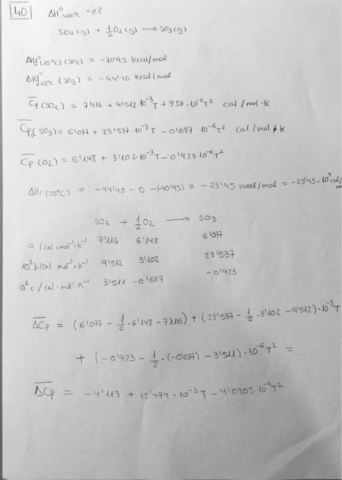 40 ΔH°400°C = d?
SO2(g) + 1/2 O2(g) → SO3(g)
ΔHf°(25°C)(SO2) = -70'45 kcal/mol
ΔHf°25°C(SO3) = -94'40 kcal/mol
Cp(SO2) = 7'116 + 9'512·10^-3 T + 3'511·10^-6 T² cal/mol·k
Cp(SO3) = 6'077 + 23'537·10^-3 T - 0'687·10^-6 T² cal/mol·k
Cp(O2) = 6'148 + 3'102·10^-3 T - 0'923·10^-6 T²
ΔHr(25°C) = -94'40 - 0 - (-70'45) = -23'95 kcal/mol =
SO2 + 1/2 O2 → SO3
a/cal·mol^-1·k^-1 7'116 6'148 6'077
10^3 b/cal·mol^-1·k^-1 9'512 3'102 23'537
10^6 c/cal·mol^-1 k^-1 3'511 -0'687 -0'923
ΔCp = (6'077 - 1/2·6'148 - 7'116) + (23'537 - 1/2·3'102 - 9'512)·10^-3 T
+ (-0'923 - 1/2·(-0'687) - 3'511)·10^-6 T² =
ΔCp = -4'113 + 12'474·10^-3 T - 4'0905·10^-6 T²